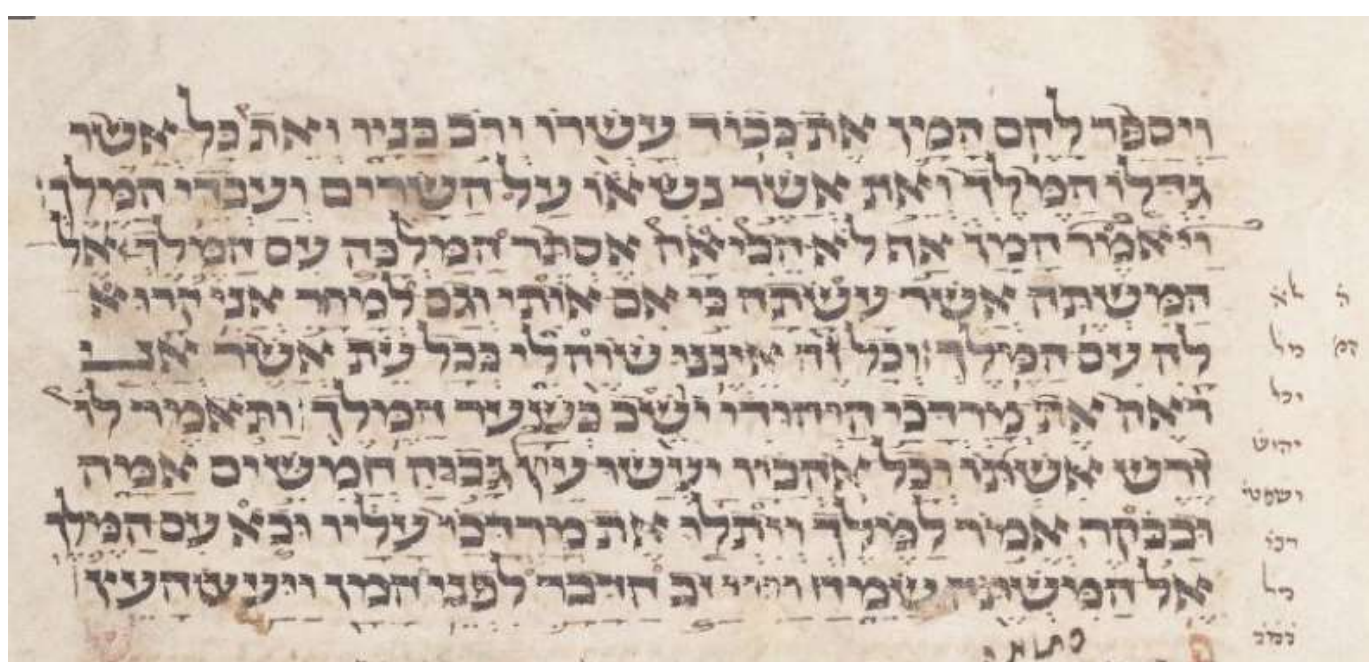 ויספר להם המן את כבוד עשרו ורב בניו ואת כל אשר
גדלו המלך ואת אשר נשאו על השרים ועבדי המלך
ויאמר המן אף לא הביאה אסתר המלכה עם המלך אל
המשתה אשר עשתה כי אם אותי וגם למחר אני קרוא
לה עם המלך וכל זה איננו שוה לי בכל עת אשר אני
ראה את מרדכי היהודי ישב בשער המלך ותאמר לו
זרש אשתו וכל אהביו יעשו עץ גבה חמשים אמה
ובבקר אמר למלך ויתלו את מרדכי עליו ובא עם המלך
אל המשתה שמח וייטב הדבר לפני המן ויעש העץ
לא
וכל
יהוש
ושפטי